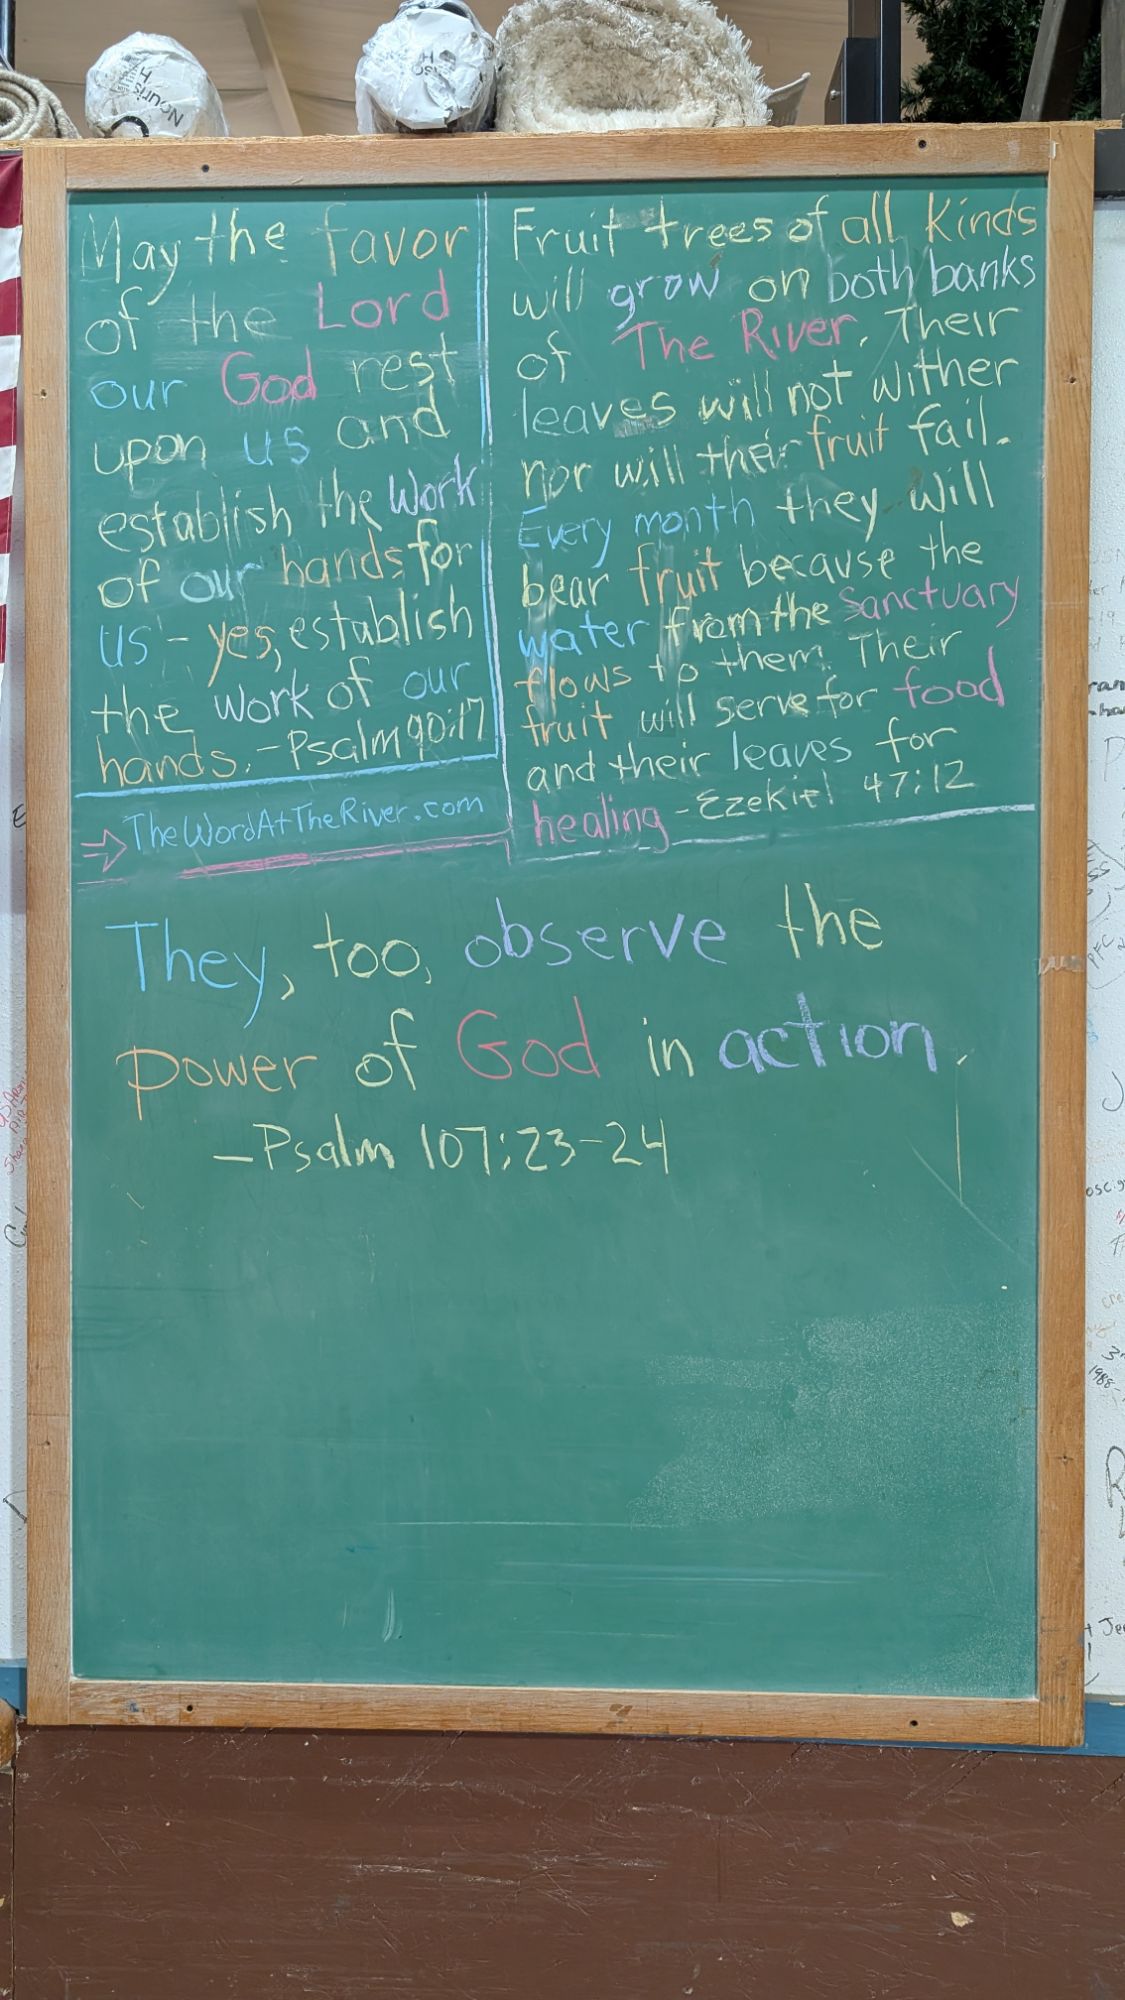 May the favor
of the Lord
our God rest
upon us and
establish the Work
of our hands for
us - yes, establish
the work of our
hands. - Psalm 90:17
TheWordAtTheRiver.com
Fruit trees of all Kinds
will grow on both banks
of The River. Their
leaves will not wither
nor will their fruit fail.
Every month they will
bear fruit because the
water from the Sanctuary
flows to them. Their
fruit will serve for food
and their leaves for
healing - Ezekiel 47:12
They, too, observe the
power of God in action.
- Psalm 107:23-24